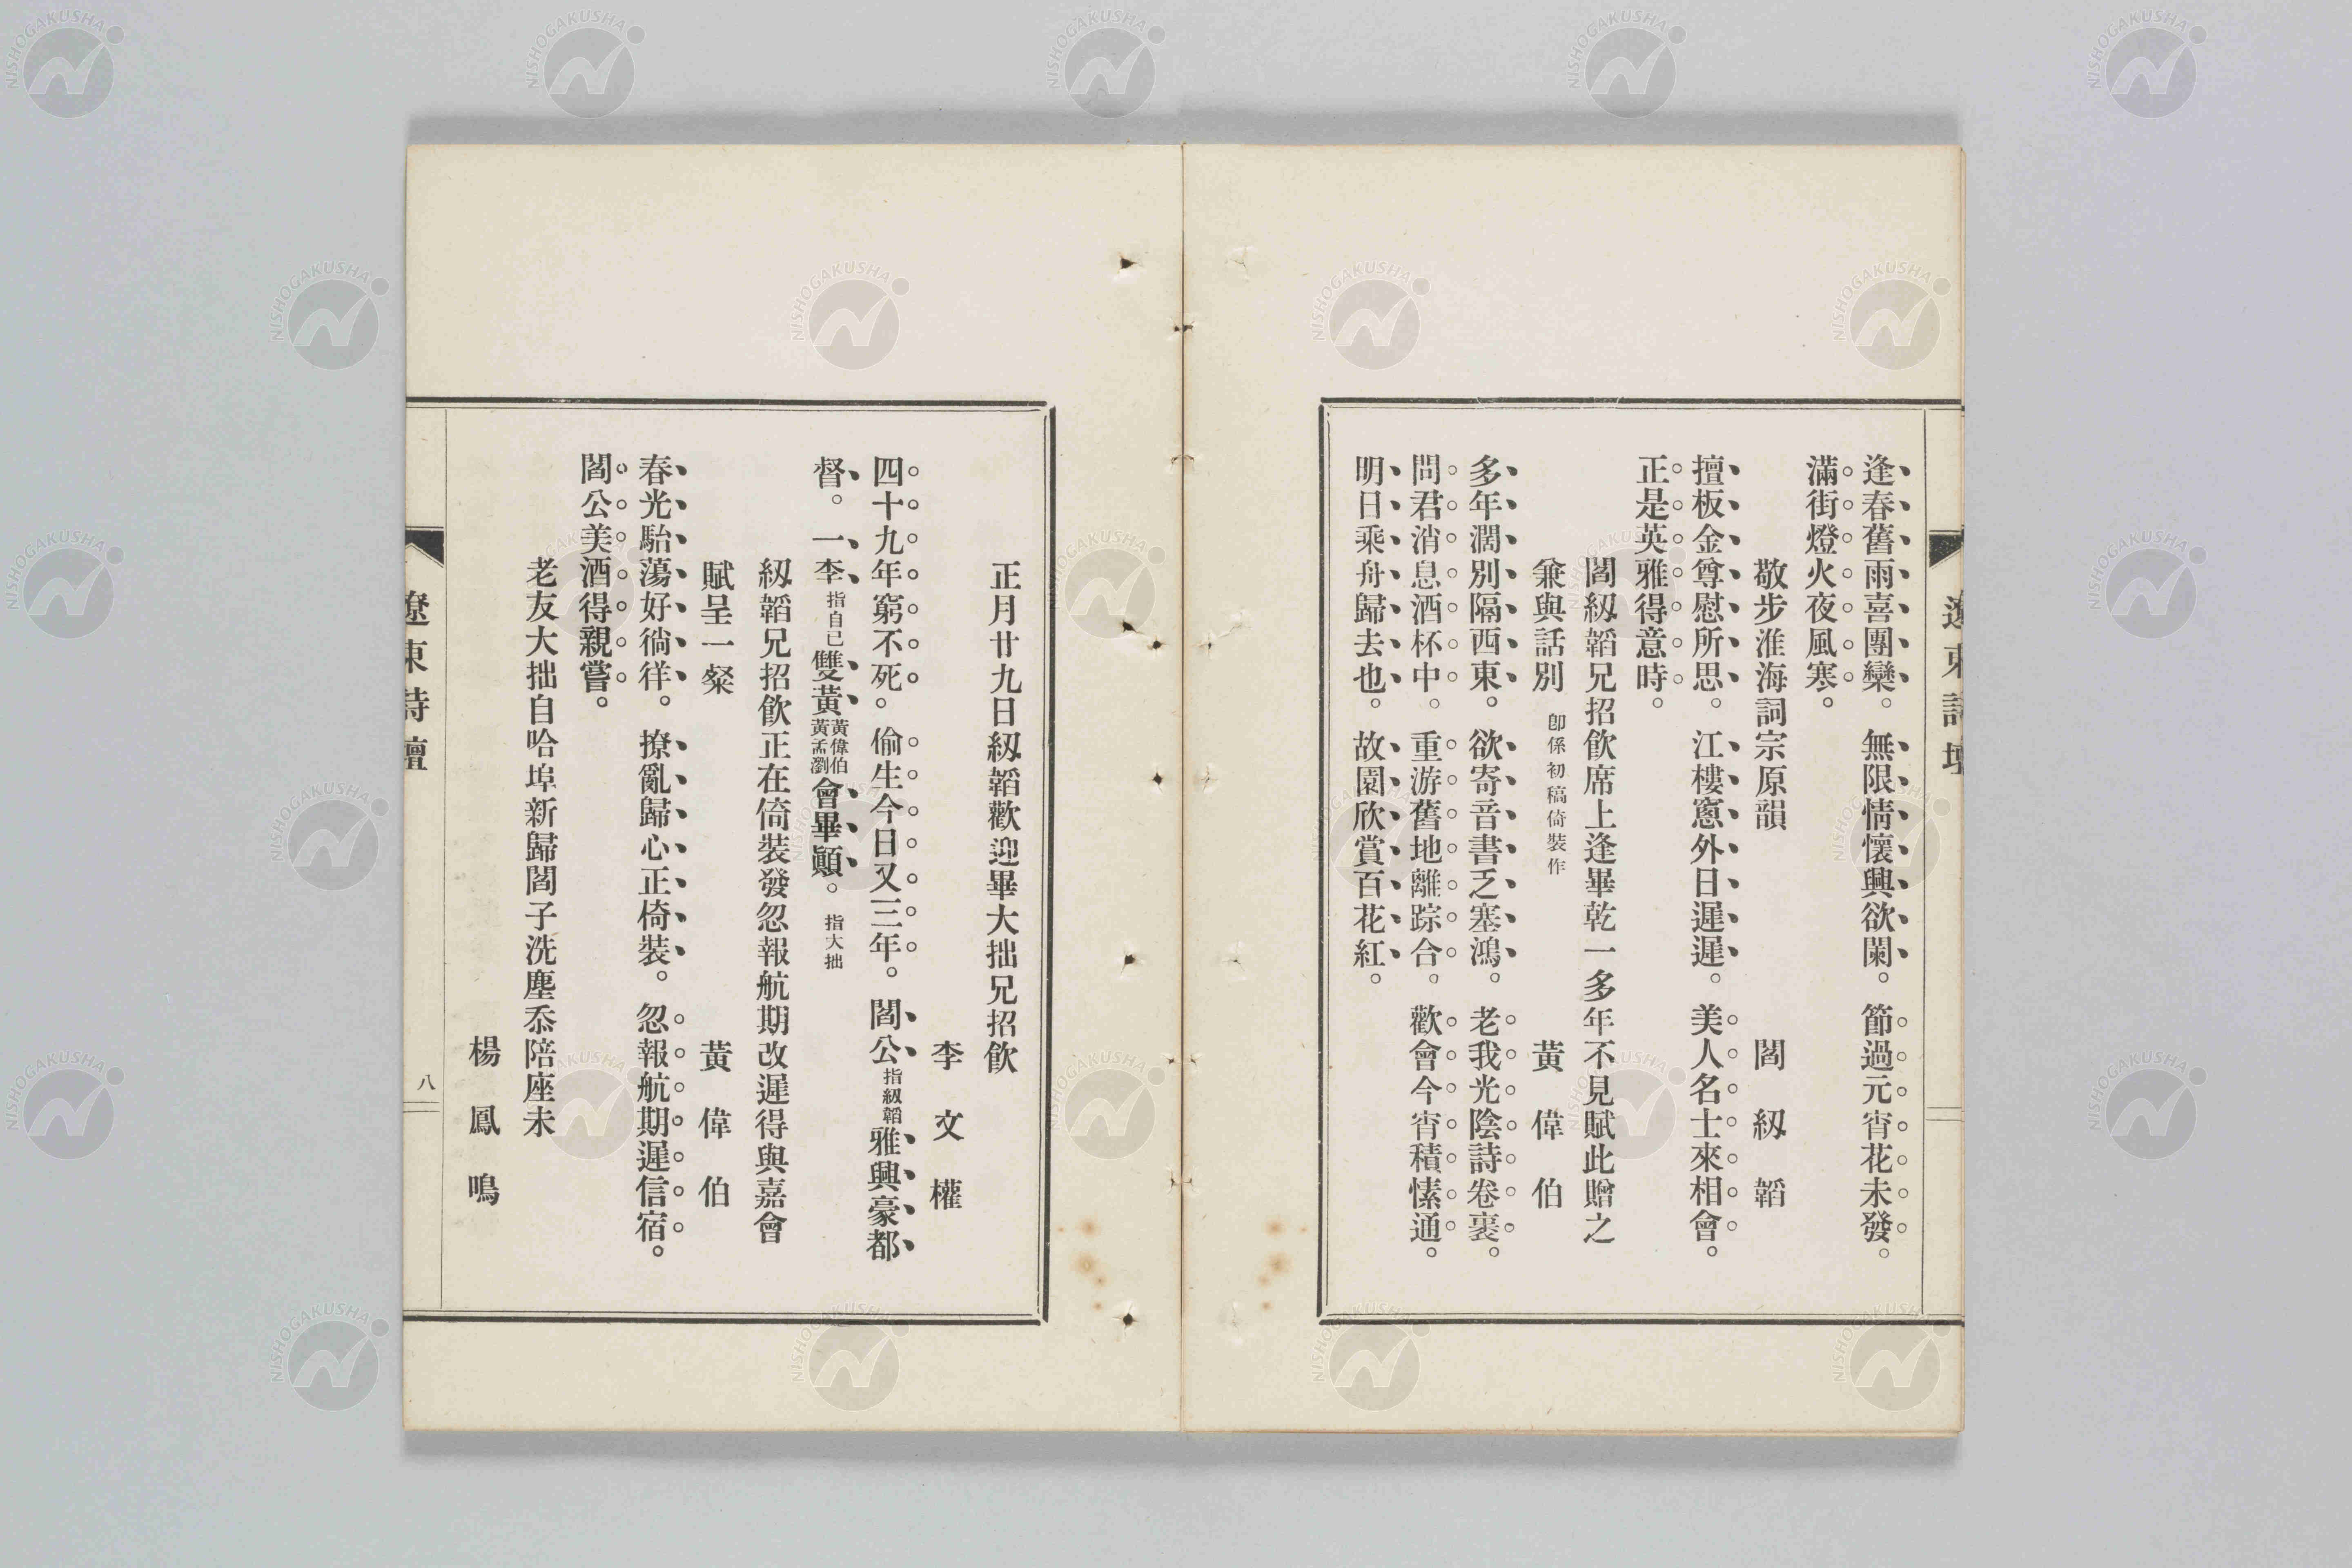 遼東詩壇
逢春舊雨喜團欒。無限情懷興欲闌。節過元宵花未發。
滿街燈火夜風寒。
敬步淮海詞宗原韻　閻紉韜
擅板金尊慰所思。江樓窻外日遲遲。美人名士來相會。
正是英雅得意時。
閻紉韜兄招飲席上逢畢乾一多年不見賦此贈之
兼與話別　卽係初稿倚裝作　黃偉伯
多年濶別隔西東。欲寄音書乏塞鴻。老我光陰詩卷裏。
問君消息酒杯中。重游舊地離踪合。歡會今宵積愫通。
明日乘舟歸去也。故園欣賞百花紅。
正月廿九日紉韜歡迎畢大拙兄招飲
李文權
四十九年窮不死。偷生今日又三年。閻公指紉韜雅興豪都
督。一李指自己雙黃黃偉伯黃孟瀏會畢顚。指大拙
紉韜兄招飲正在倚裝發忽報航期改遲得與嘉會
賦呈一粲　黃偉伯
春光駘蕩好徜徉。撩亂歸心正倚裝。忽報航期遲信宿。
閻公美酒得親嘗。
老友大拙自哈埠新歸閻子洗塵忝陪座未
楊鳳鳴
遼東詩壇
八
NISHOGAKUSHA